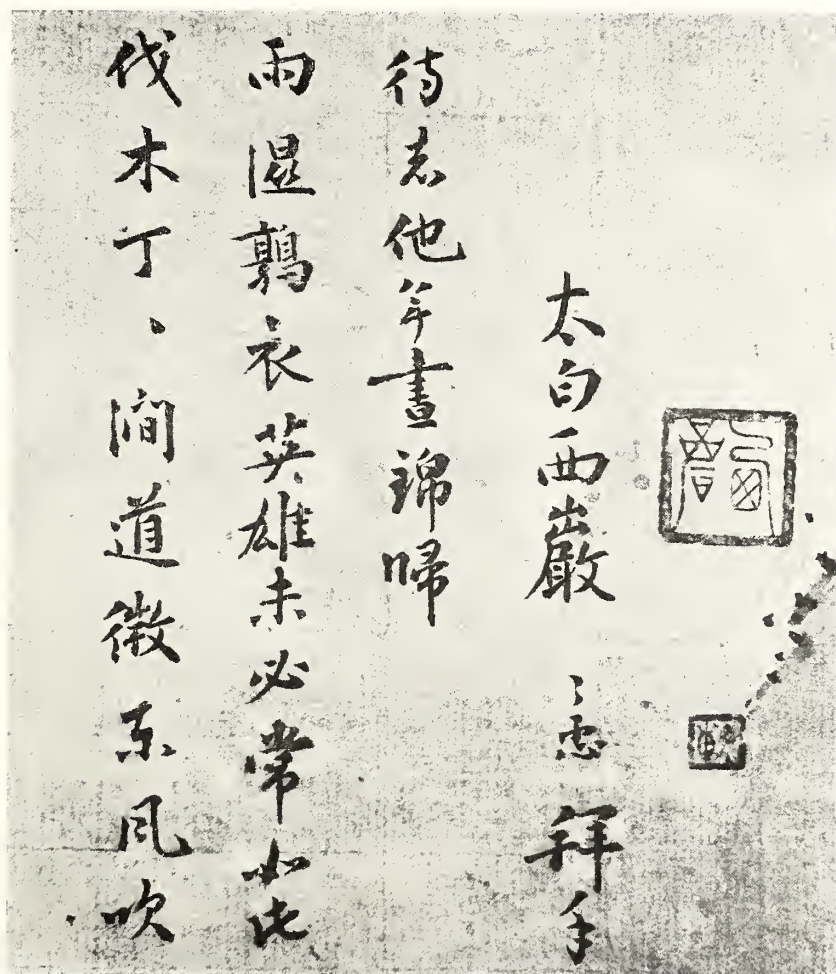 伐木丁〻澗道微東風吹
雨濕鶉衣英雄未必常如此
待看他年晝錦歸
太白西巖 了惠 拜手